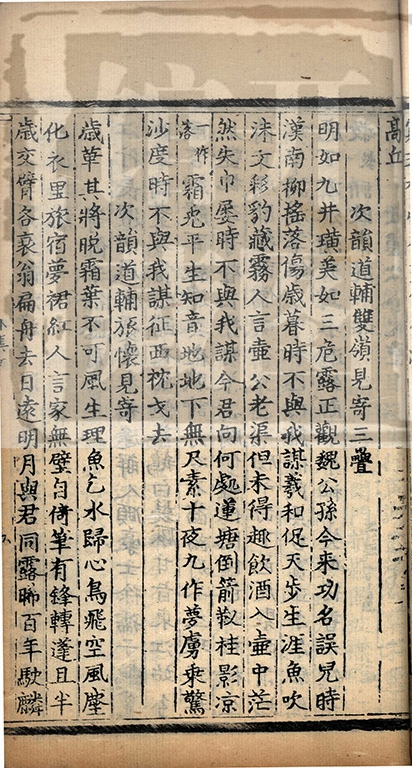 高丘
次韻道輔雙嶺見寄三疊
明如九井璜美如三危露正觀魏公孫今來功名誤兒時
漢南柳搖落傷歲暮時不與我謀羲和促天步生涯魚吹
沫文彩豹藏霧人言壷公老渠但未得趣飲酒入壷中茫
然失巾屨時不與我謀今君向何處蓮塘倒箭靫桂影凉
一作客霜兎平生知音地地下無尺素十夜九作夢虜乘驚
沙度時不與我謀征西枕戈去
次韻道輔旅懷見寄
歲華其將晩霜葉不可風生理魚乞水歸心鳥飛空風塵
化衣里旅宿夢裙紅人言家無壁自倚筆有鋒轉蓬且半
歲交臂各衰翁扁舟去日遠明月與君同露晞百年駃麟